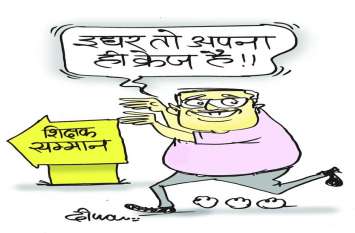 इधर तो अपना
ही क्रेज है!!
शिक्षक
सम्मान